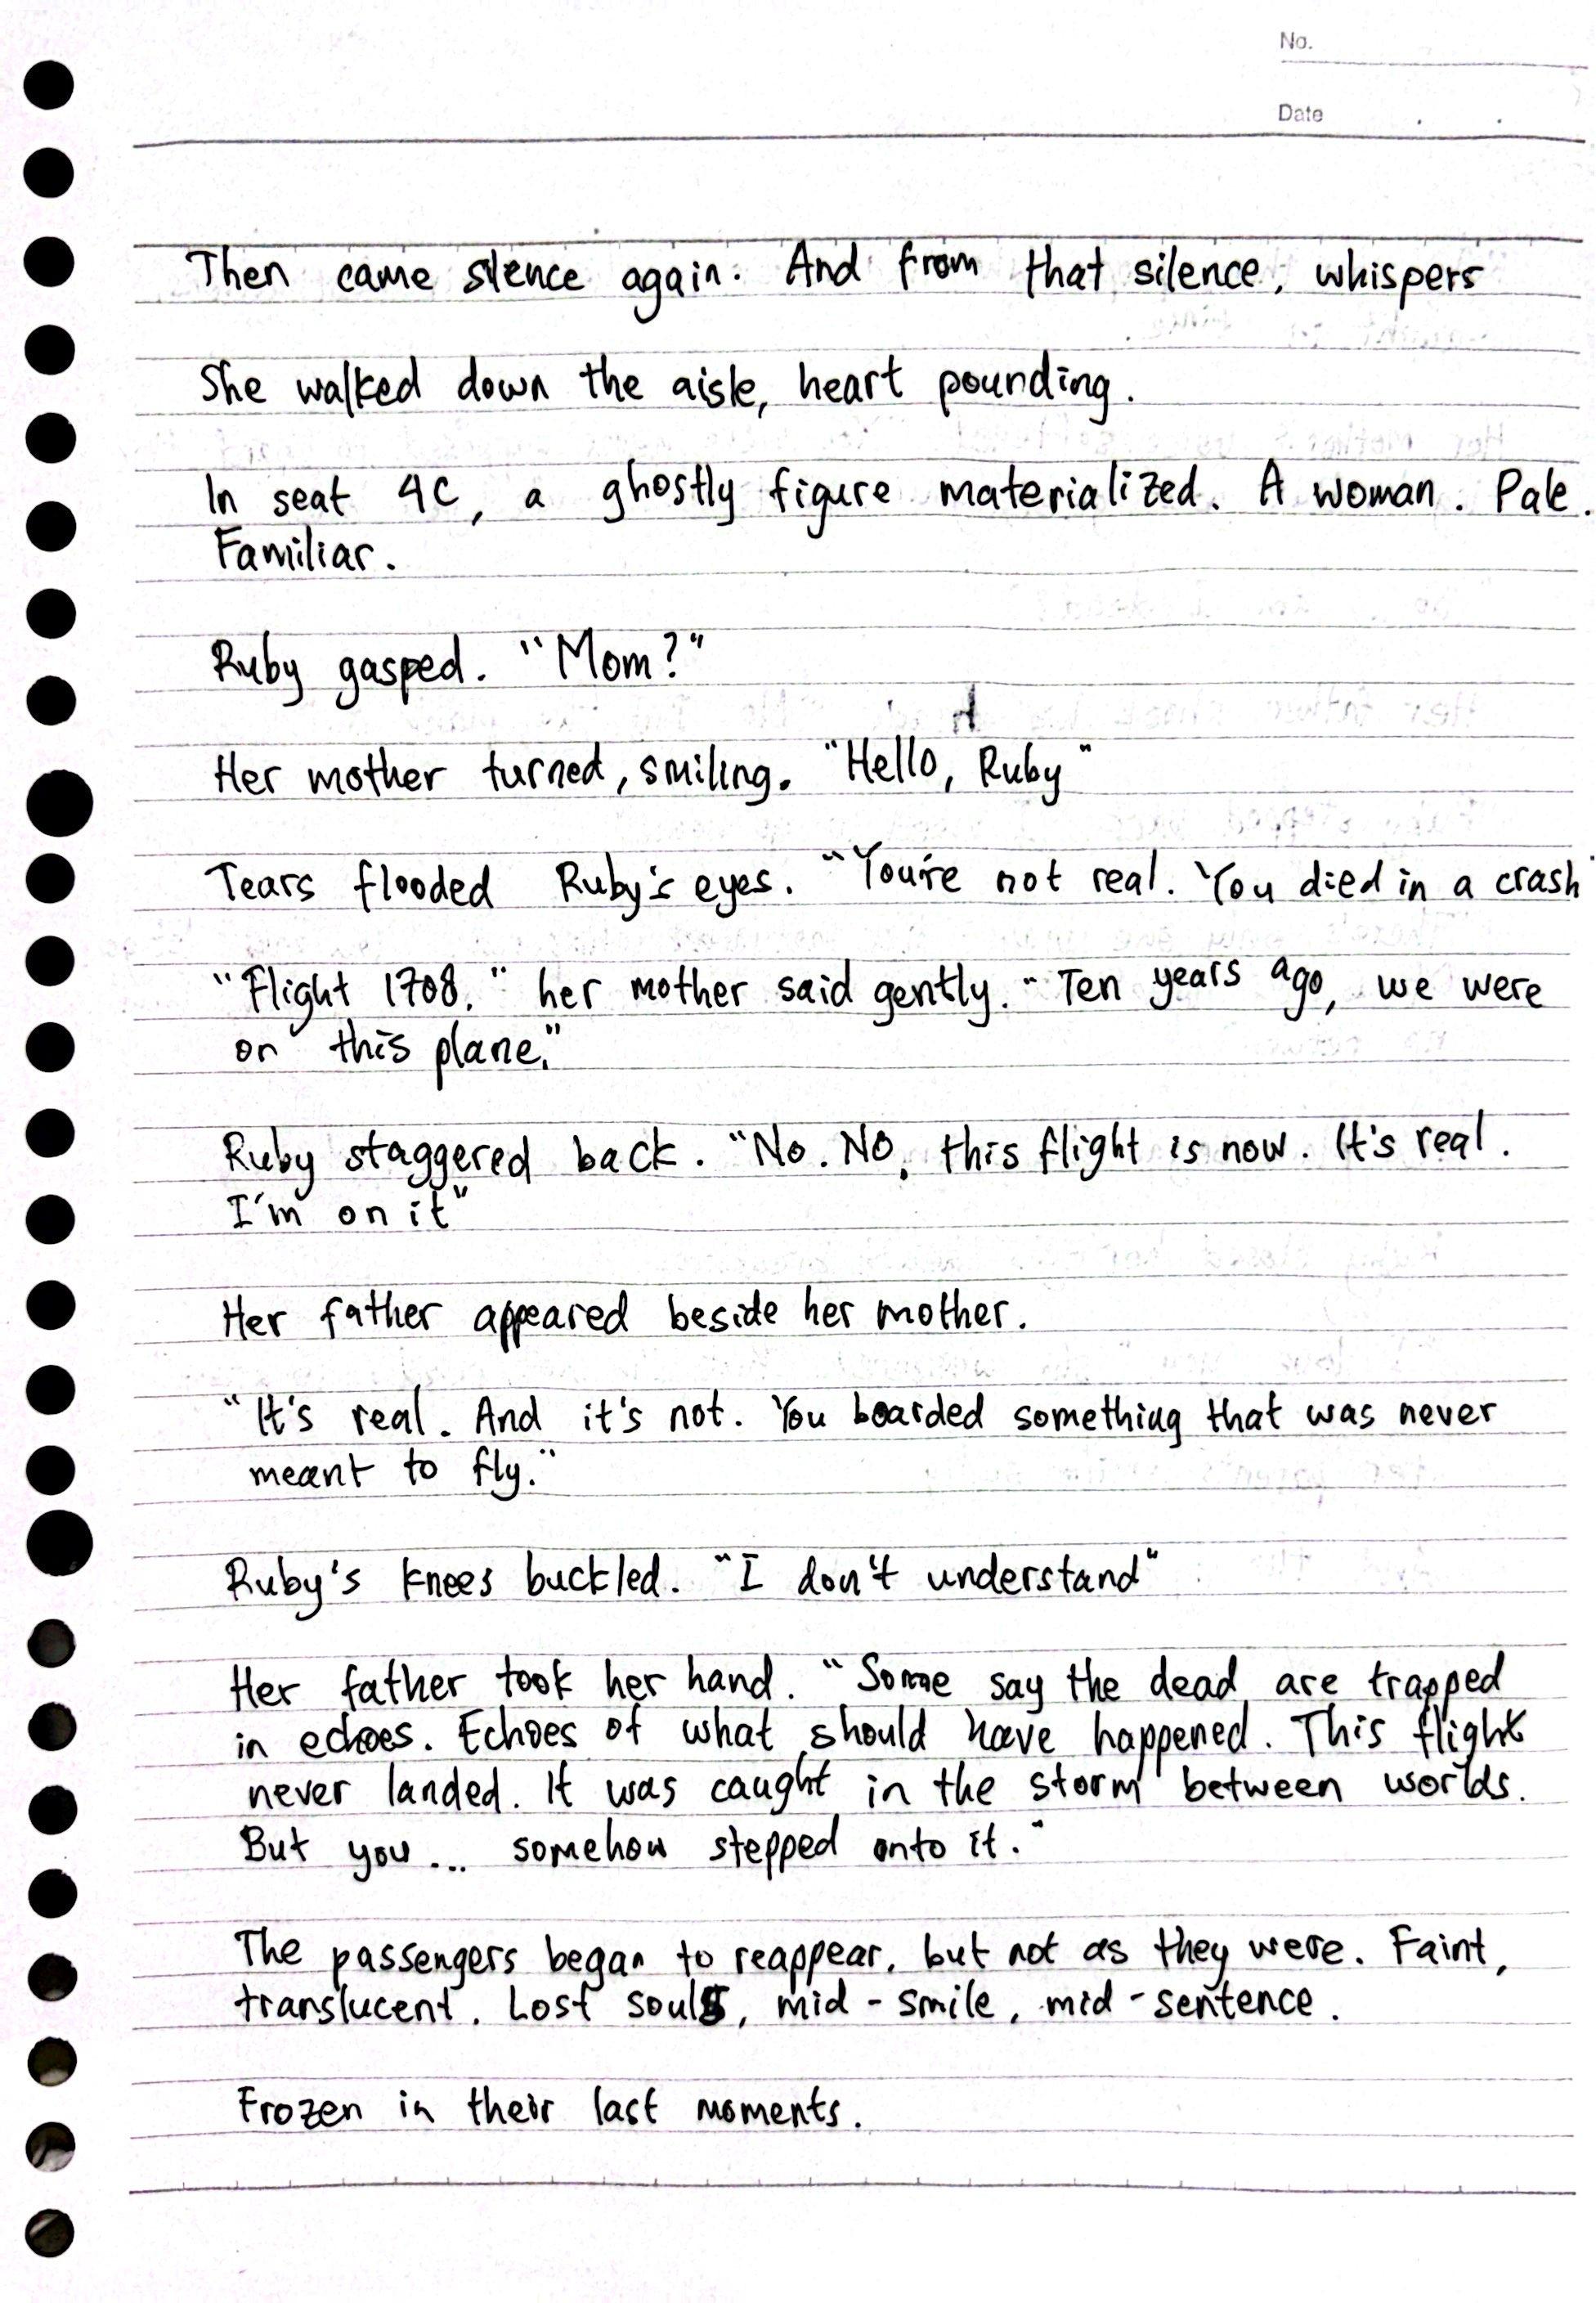 No.
Date
Then came silence again. And from that silence, whispers
She walked down the aisle, heart pounding.
In seat 4C, a ghostly figure materialized. A woman. Pale.
Familiar.
Ruby gasped. "Mom?"
Her mother turned, smiling. "Hello, Ruby"
Tears flooded Ruby's eyes. "You're not real. You died in a crash
"Flight 1708." her mother said gently. "Ten years ago, we were
on this plane."
Ruby staggered back. "No. No, this flight is now. It's real.
I'm on it"
Her father appeared beside her mother.
"It's real. And it's not. You boarded something that was never
meant to fly."
Ruby's knees buckled. "I don't understand"
Her father took her hand. "Some say the dead are trapped
in echoes. Echoes of what should have happened. This flight
never landed. It was caught in the storm between worlds.
But you... somehow stepped onto it."
The passengers began to reappear, but not as they were. Faint,
translucent. Lost souls, mid-smile, mid-sentence.
Frozen in their last moments.